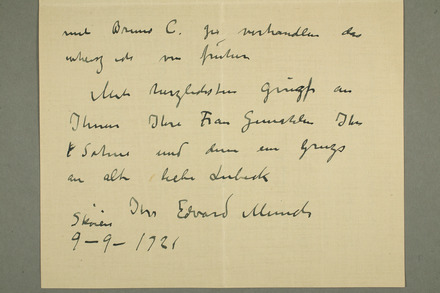 mit Bruno C. zu verhandlen das
von früher
Mit herzlichsten Grüsse an
Ihnen Ihre Frau Gemahlin Ihre
Sohne und dann ein Gruss
an alte liebe Lübeck
Ihr Edvard Munch
Skøien
9–9–1921